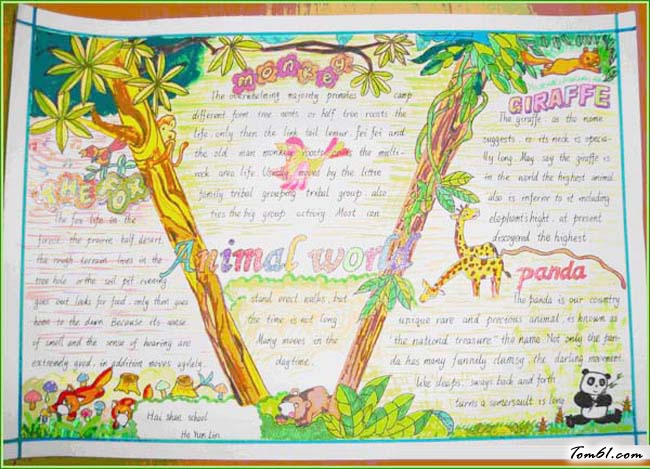 monkey
The overwhelming majority primates camp
different form tree nests or half tree roosts the
life, only then the link tail lemur, fei fei and
the old man monkey roosts the multi-
rock area life. Usually moves by the little
family tribal grouping tribal group, also
ties the big group activity. Most can
stand erect walks, but
the time is not long.
Many moves in the
daytime.
THE FOX
The fox life in the
forest, the prairie, half desert,
the rough terrain, lives in the
tree hole or the soil pit, evening
goes out looks for food, only then goes
home to the dawn. Because its sense
of smell and the sense of hearing are
extremely good, in addition moves agilely,
Animal world
GIRAFFE
The giraffe, as the name
suggests, is its neck is specia-
lly long. May say the giraffe is
in the world the highest animal,
also is inferior to it including
elephant's hight, at present
discoverd the highest
panda
The panda is our country
unique rare and precious animal, is known as
the national treasure" the name. Not only the pan-
da has many funnily clumsy, the darling movement,
like sleeps, sways back and forth,
turns a somersault is long
Hai shan school
He Yun Lin
Tom61.com